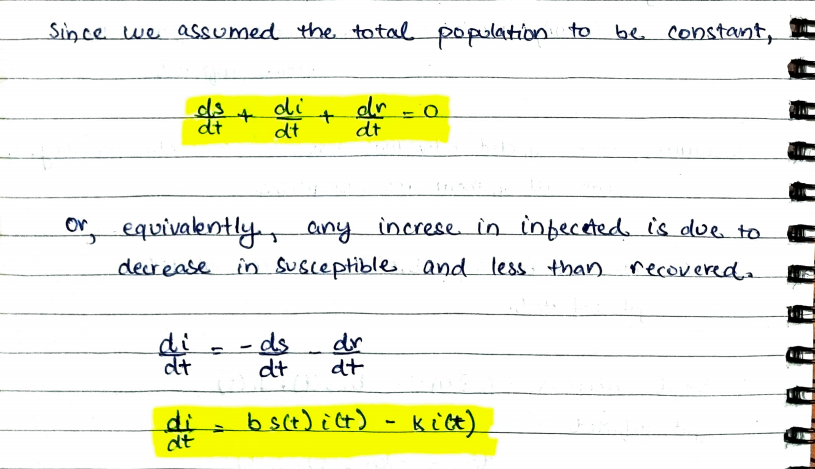 Since we assumed the total population to be constant,
ds/dt + di/dt + dr/dt = 0
or, equivalently, any increse in infected is due to
decrease in susceptible and less than recovered.
di/dt = - ds/dt - dr/dt
di/dt = b s(t) i(t) - k i(t)